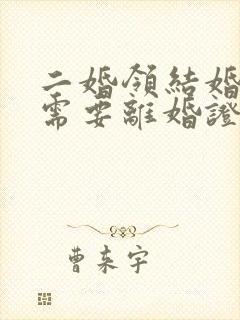 二婚領結婚
需要離婚證
曹来宇